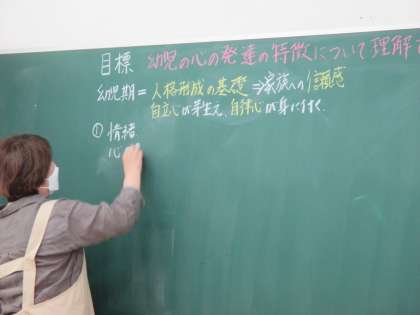 目標 幼児の心の発達の特徴について理解
幼児期＝人格形成の基礎⇒家族への信頼感
自立心が芽生え、自律心が身に付く.
①情緒
心